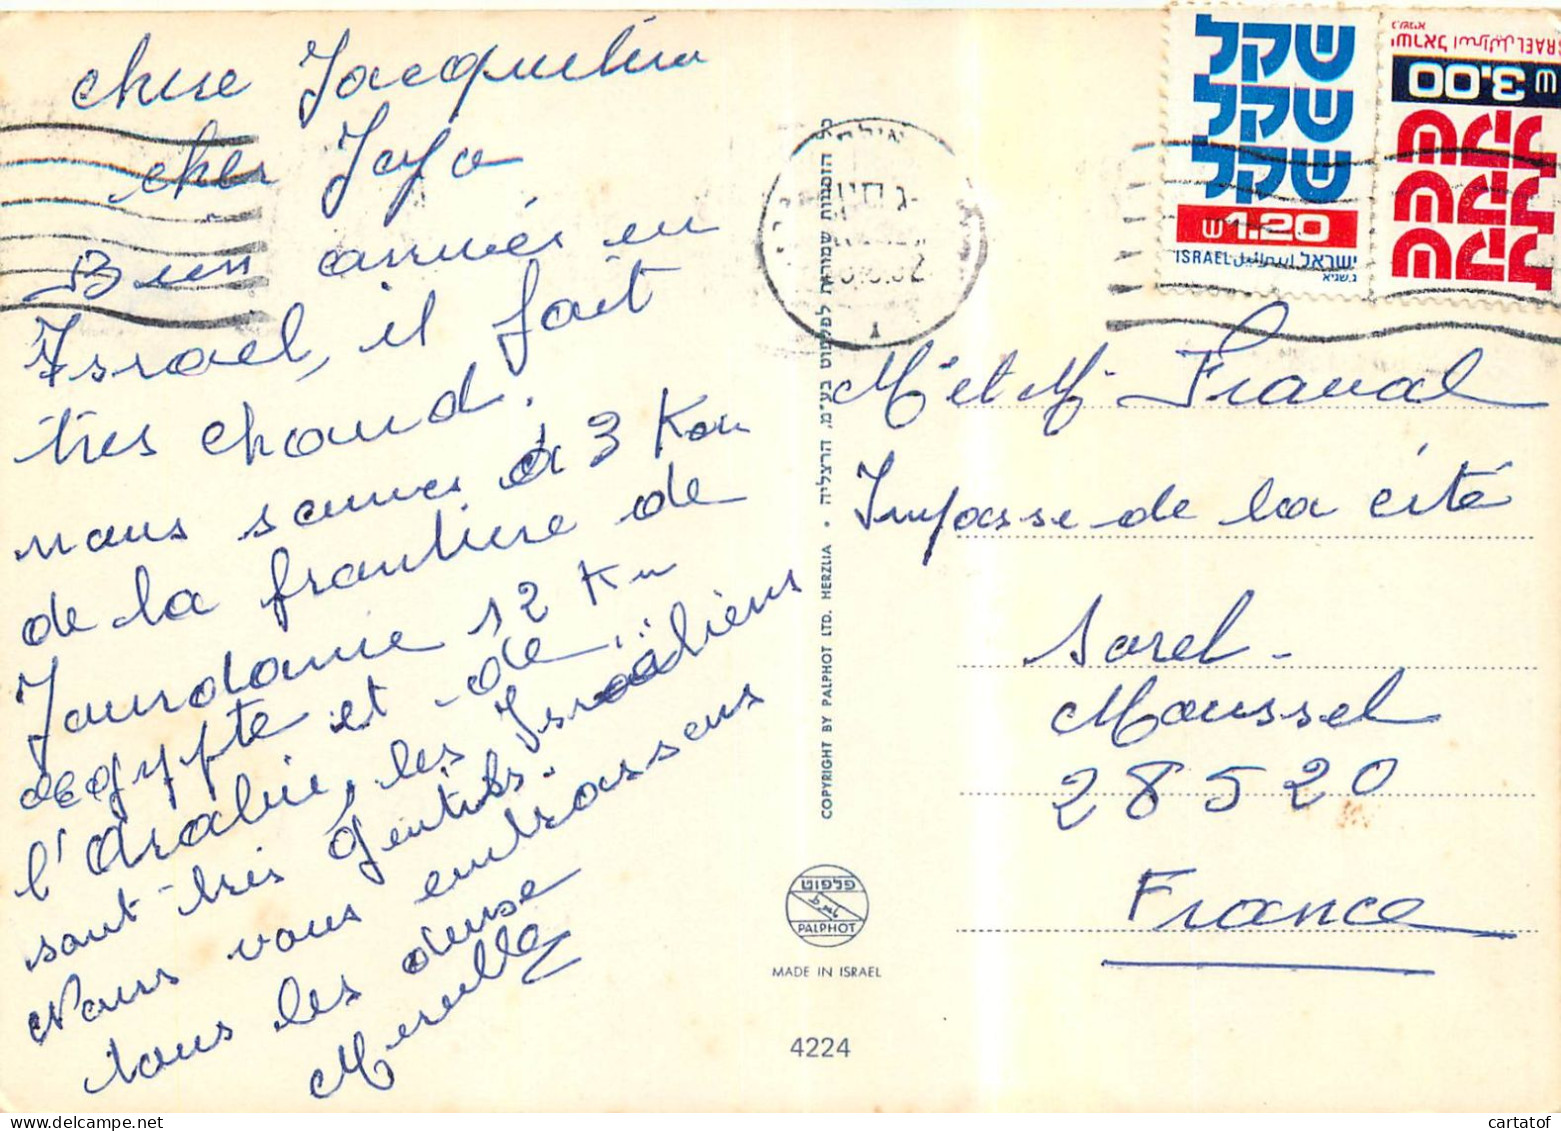 chere Jacqueline
cher Jojo
Bien arrivés en
Israel, il fait
tres chaud.
nous sommes à 3 Km
de la frontiere de
Jourdanie 12 Km
degypte et de
l'Arabie, les Israëliens
sont très gentils.
Nous vous embrassons
tous les deux
Mireille
כל הזכויות שמורות לפלפוט בע"מ. הרצליה • COPYRIGHT BY PALPHOT LTD. HERZLIA
פלפוט
PALPHOT
MADE IN ISRAEL
4224
אילת
שקל
שקל
שקל
₪1.20
ISRAEL اسرائيل ישראל
ISRAEL اسرائيل ישראל
₪ 3.00
שקל
שקל
שקל
Mr et Me Fraval
Impasse de la cité
Sorel-
Moussel
28520
France
cartatof